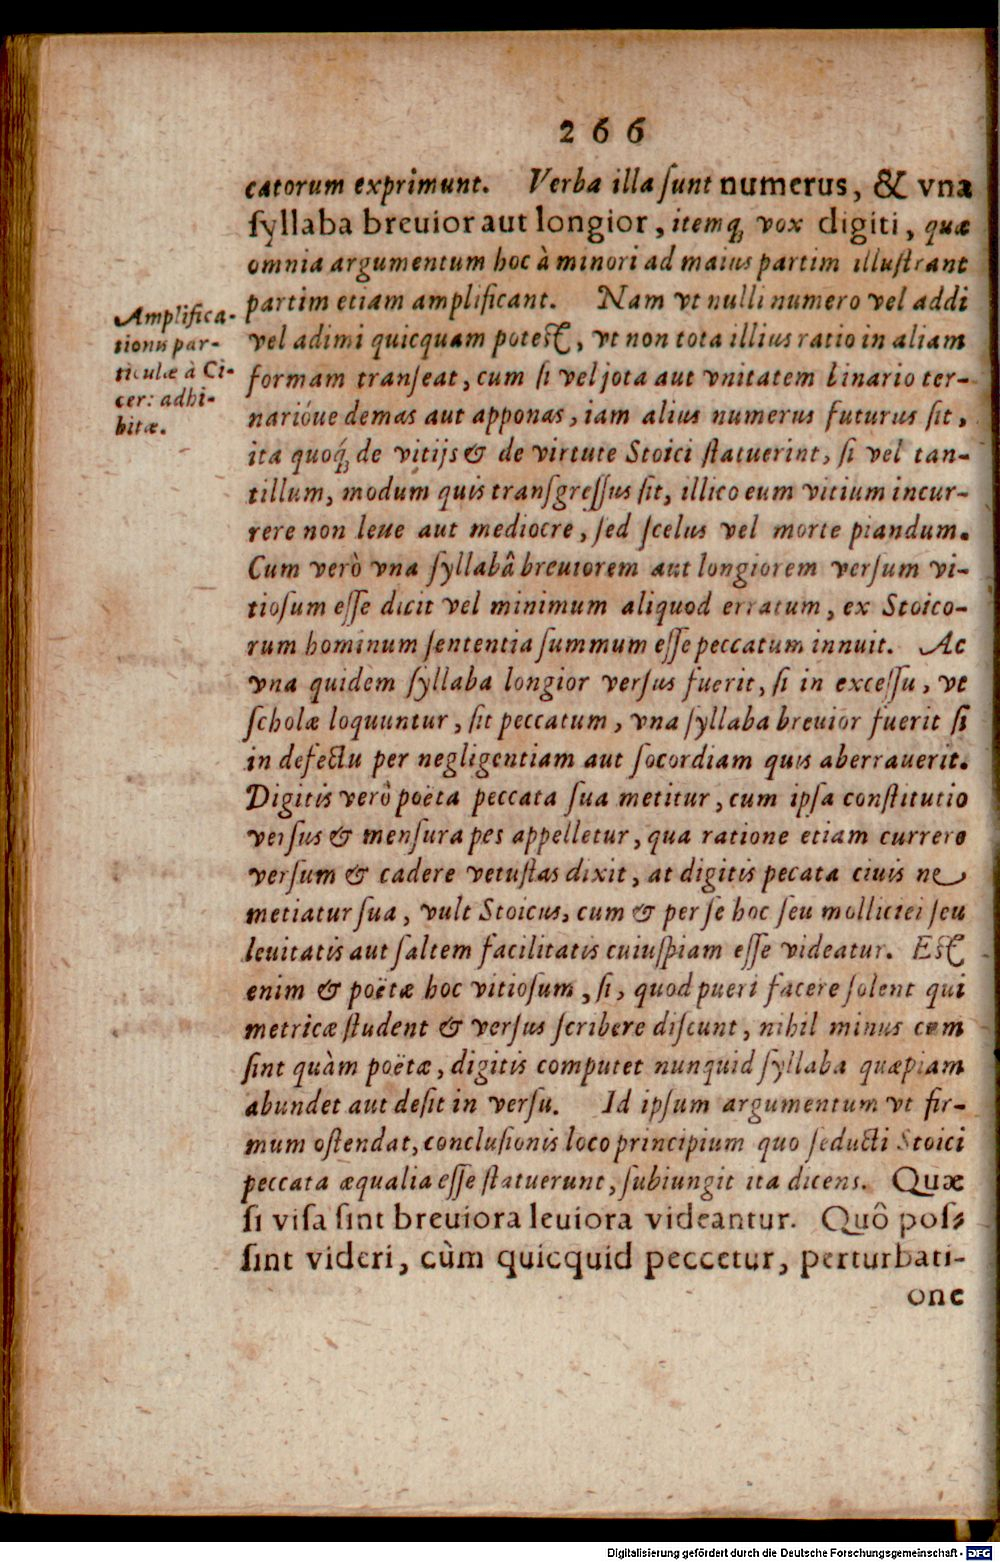 266
catorum exprimunt. Verba illa ſunt numerus, & vna
ſyllaba breuior aut longior, itemq́; vox digiti, quæ
omnia argumentum hoc à minori ad maius partim illuſtrant
partim etiam amplificant. Nam vt nulli numero vel addi
vel adimi quicquam poteſt, vt non tota illius ratio in aliam
formam tranſeat, cum ſi vel jota aut vnitatem linario ter-
narióue demas aut apponas, iam alius numerus futurus ſit,
ita quoq́; de vitijs & de virtute Stoici ſtatuerint, ſi vel tan-
tillum, modum quis tranſgreſſus ſit, illico eum vitium incur-
rere non leue aut mediocre, ſed ſcelus vel morte piandum.
Cum verò vna ſyllabâ breuiorem aut longiorem verſum vi-
tioſum eſſe dicit vel minimum aliquod erratum, ex Stoico-
rum hominum ſententia ſummum eſſe peccatum innuit. Ac
vna quidem ſyllaba longior verſus fuerit, ſi in exceſſu, vt
ſcholæ loquuntur, ſit peccatum, vna ſyllaba breuior fuerit ſi
in defectu per negligentiam aut ſocordiam quis aberrauerit.
Digitis verò poëta peccata ſua metitur, cum ipſa conſtitutio
verſus & menſura pes appelletur, qua ratione etiam currere
verſum & cadere vetuſtas dixit, at digitis pecata ciuis ne
metiatur ſua, vult Stoicus, cum & per ſe hoc ſeu mollictei ſeu
leuitatis aut ſaltem facilitatis cuiuſpiam eſſe videatur. Eſt
enim & poëtæ hoc vitioſum, ſi, quod pueri facere ſolent qui
metricæ ſtudent & verſus ſcribere diſcunt, nihil minus cum
ſint quàm poëtæ, digitis computet nunquid ſyllaba quæpiam
abundet aut deſit in verſu. Id ipſum argumentum vt fir-
mum oſtendat, concluſionis loco principium quo ſeducti Stoici
peccata æqualia eſſe ſtatuerunt, ſubiungit ita dicens. Quæ
ſi viſa ſint breuiora leuiora videantur. Quô poſ-
ſint videri, cùm quicquid peccetur, perturbati-
one
Amplifica-
tionis par-
ticulæ à Ci-
cer: adhi-
bitæ.
Digitalisierung gefördert durch die Deutsche Forschungsgemeinschaft - DFG